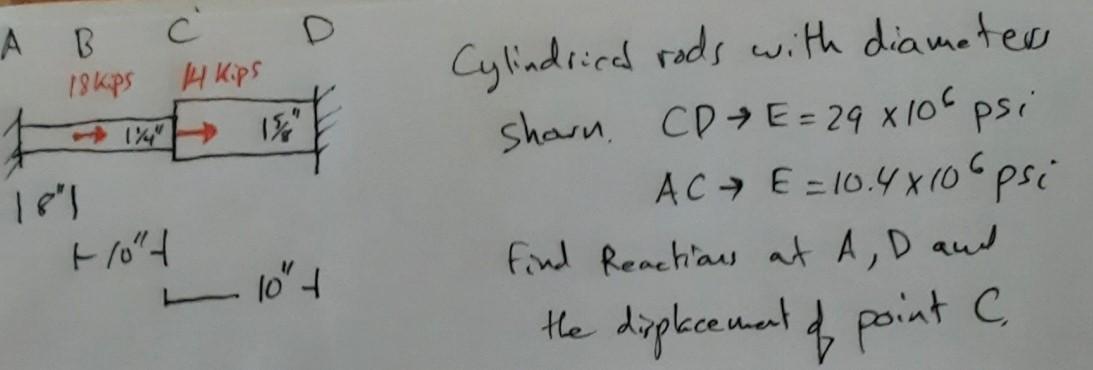 A B C D
18 Kips 14 Kips
1¼" 1⅝"
8"
10"
10"
Cylindrical rods with diameters
shown. CD → E = 29 × 10⁶ psi
AC → E = 10.4 × 10⁶ psi
Find Reactions at A, D and
the displacement of point C.